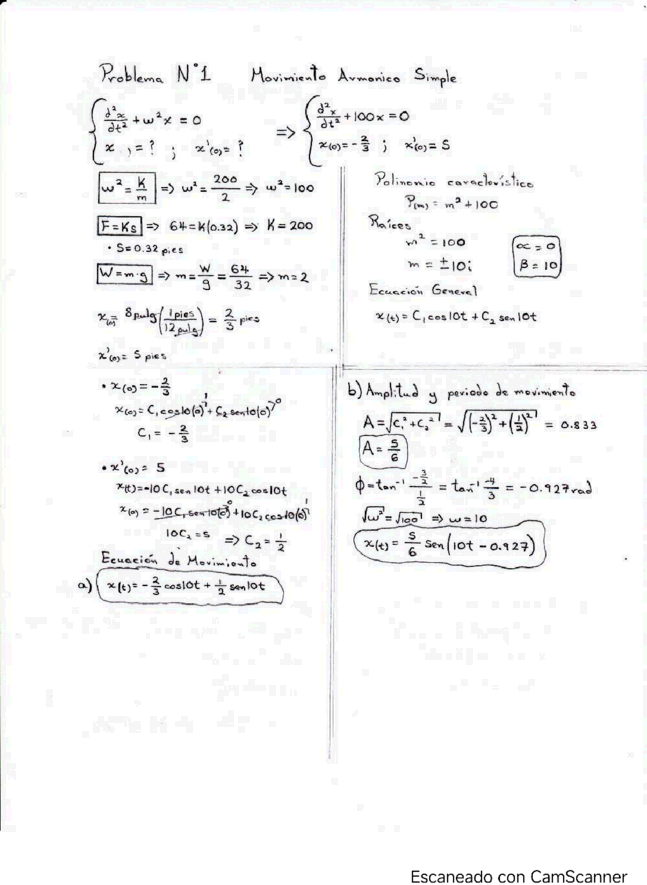 Problema N°1 Movimiento Armonico Simple
d²x/dt² + ω²x = 0 => d²x/dt² + 100x = 0
x , = ? ; x'(0) = ? x(0) = -2/3 ; x'(0) = 5
ω² = K/m => ω² = 200/2 => ω² = 100
F = Ks => 64 = K(0.32) => K = 200
• S = 0.32 pies
W = m·g => m = W/g = 64/32 => m = 2
x(0) = 8 pulg (1 pies/12 pulg) = 2/3 pies
x'(0) = 5 pies
Polinomio característico
P(m) = m² + 100
Raíces
m² = 100
m = ±10i
α = 0
β = 10
Ecuación General
x(t) = C₁ cos10t + C₂ sen10t
• x(0) = -2/3
x(0) = C₁ cos10(0)¹ + C₂ sen10(0)⁰
C₁ = -2/3
• x'(0) = 5
x(t) = -10C₁ sen10t + 10C₂ cos10t
x(0) = -10C₁ sen10(0)⁰ + 10C₂ cos10(0)¹
10C₂ = 5 => C₂ = 1/2
Ecuación de Movimiento
a) x(t) = -2/3 cos10t + 1/2 sen10t
b) Amplitud y periodo de movimiento
A = √(C₁² + C₂²) = √((-2/3)² + (1/2)²) = 0.833
A = 5/6
ϕ = tan⁻¹ (-3/2)/(1/2) = tan⁻¹ -4/3 = -0.927 rad
√ω² = √100 => ω = 10
x(t) = 5/6 Sen(10t - 0.927)
Escaneado con CamScanner